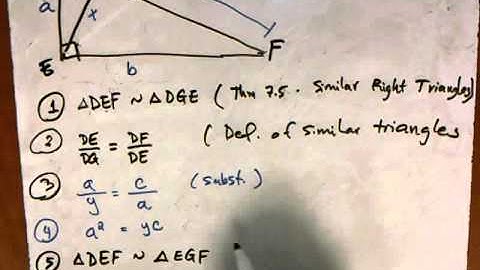 a
x
E
b
F
① △DEF ~ △DGE (Thm 7.5. Similar Right Triangles)
② DE/DG = DF/DE (Def. of similar triangles
③ a/y = c/a (subst.)
④ a² = yc
⑤ △DEF ~ △EGF